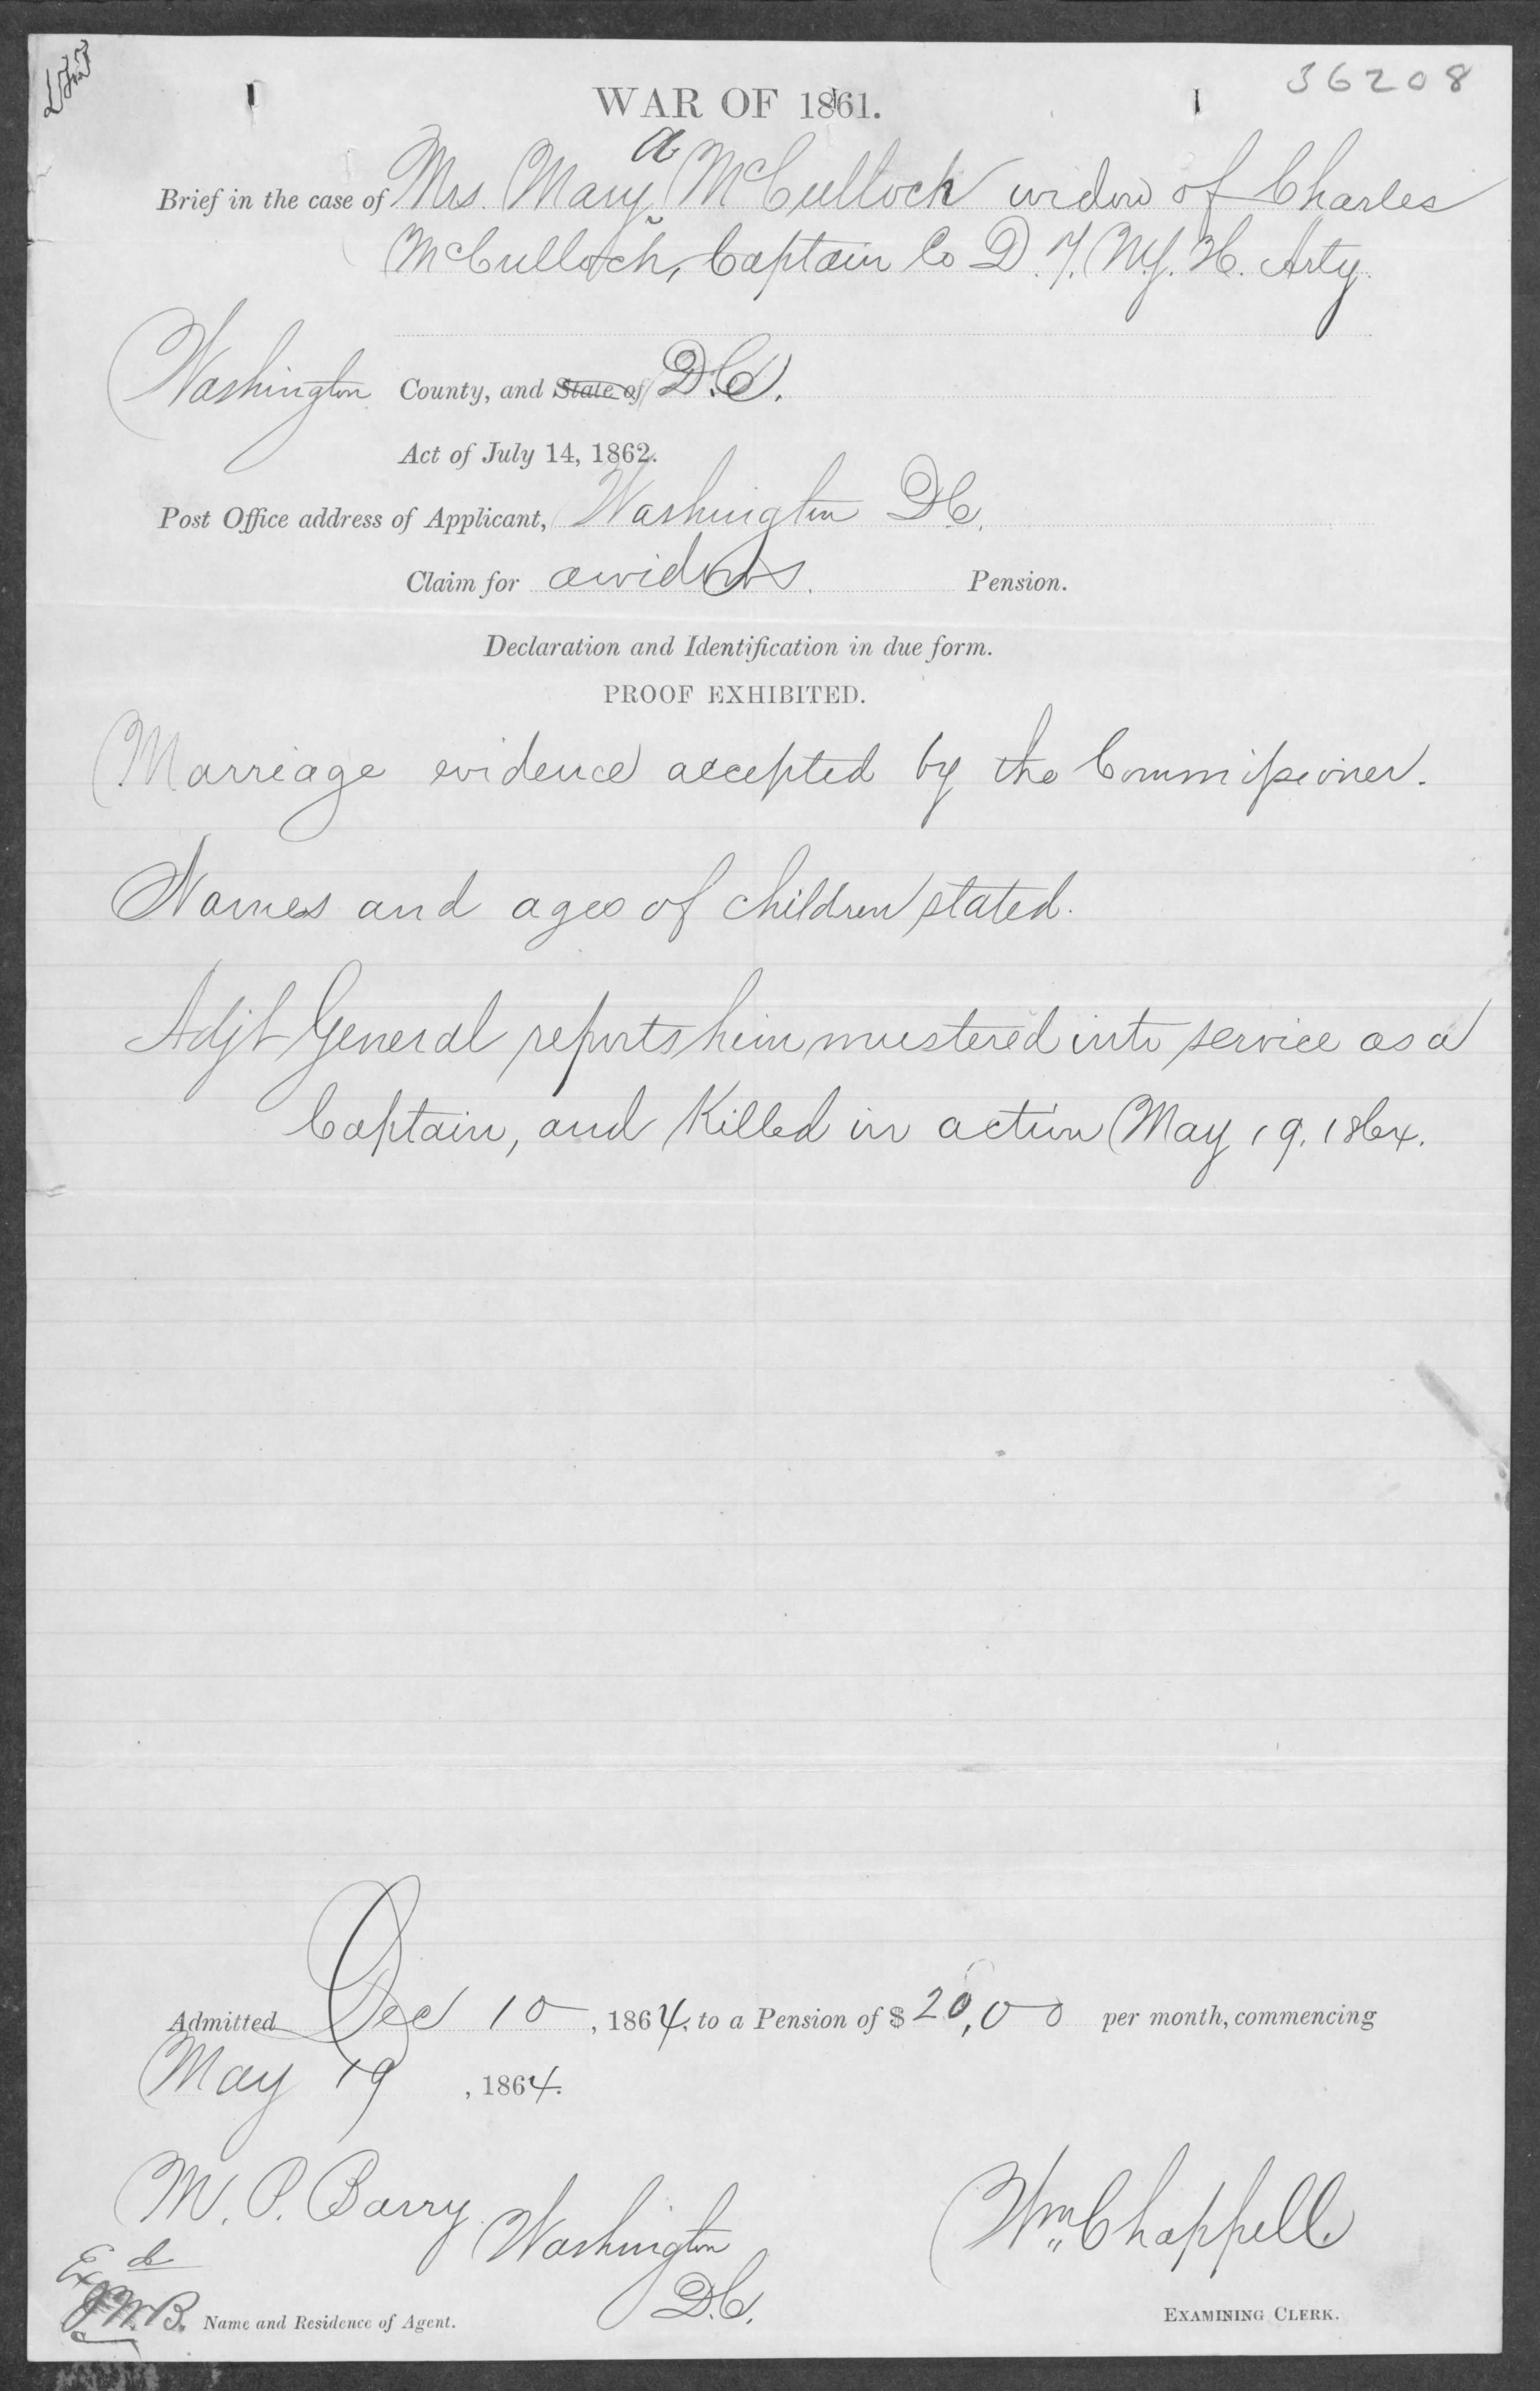 36208
WAR OF 1861.
a
Brief in the case of Mrs. Mary McCulloch widow of Charles
McCulloch, Captain Co D. 7. N.Y. H. Arty.
Washington County, and State of D.C.
Act of July 14, 1862.
Post Office address of Applicant, Washington D.C.
Claim for a widows. Pension.
Declaration and Identification in due form.
PROOF EXHIBITED.
Marriage evidence accepted by the Commissioner.
Names and ages of children stated.
Adjt General reports him mustered into service as a
Captain, and Killed in action May 19. 1864.
Admitted Dec 10, 1864, to a Pension of $20,00 per month, commencing
May 19, 1864.
M. P. Barry Washington
D.C.
Wm Chappell
Exd
J.W.B. Name and Residence of Agent.
EXAMINING CLERK.